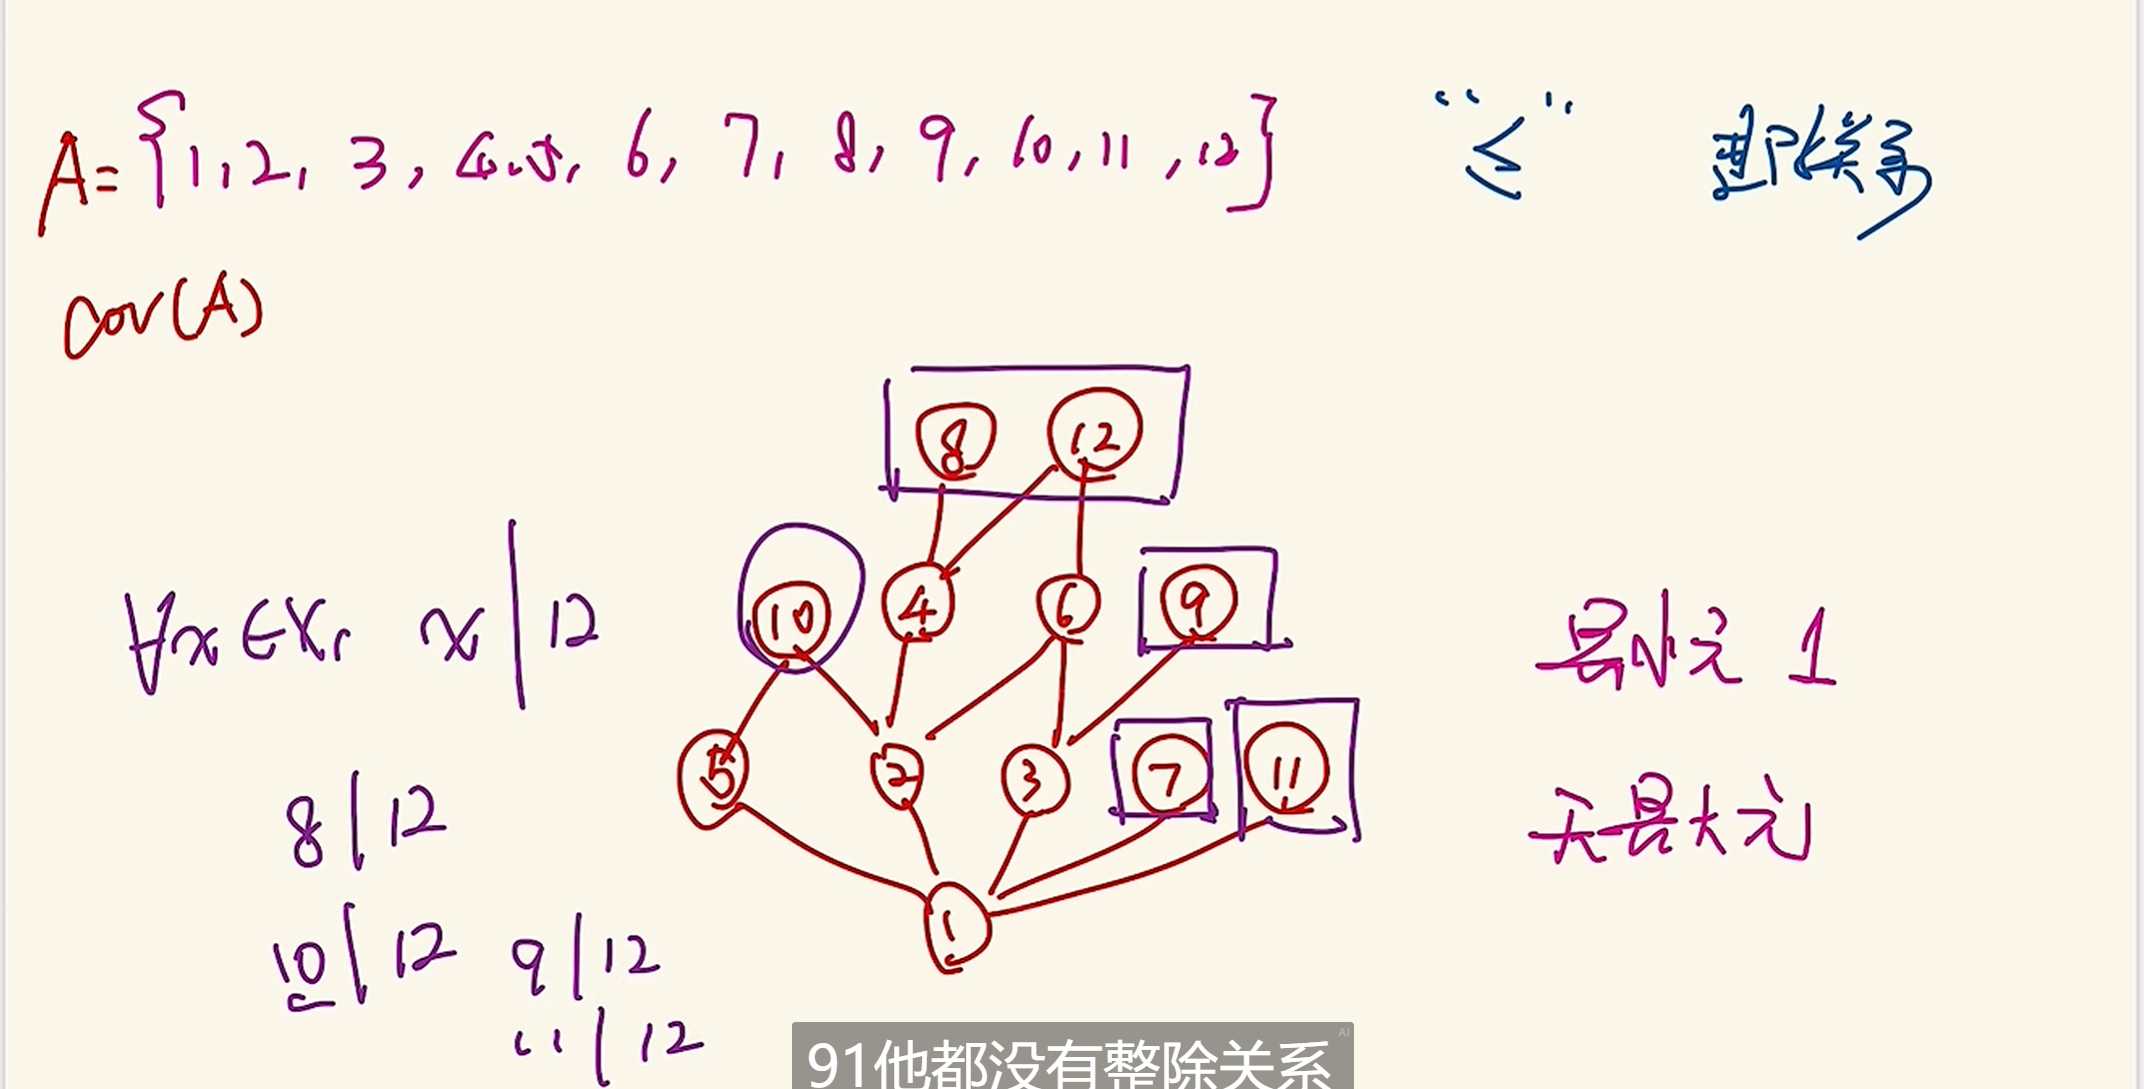 A={1,2,3,4,5,6,7,8,9,10,11,12} "≤" 整除关系
cov(A)
8 12
10 4 6 9
5 2 3 7 11
1
∀x∈X, x|12
8|12
10|12 9|12
11|12
最小元 1
无最大元
91他都没有整除关系
AI